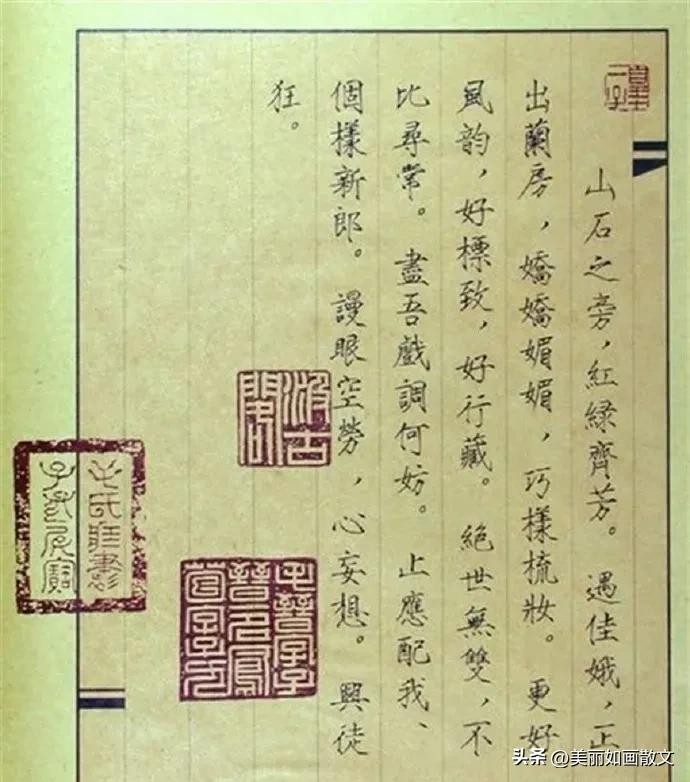 山石之旁，紅綠齊芳。遇佳娥，正
出蘭房，嬌嬌媚媚，巧樣梳妝。更好
風韵，好標致，好行藏。絕世無雙，不
比尋常。盡吾戲調何妨。止應配我、
個樣新郎。謾眼空勞，心妄想。興徒
狂。
头条 @美丽如画散文